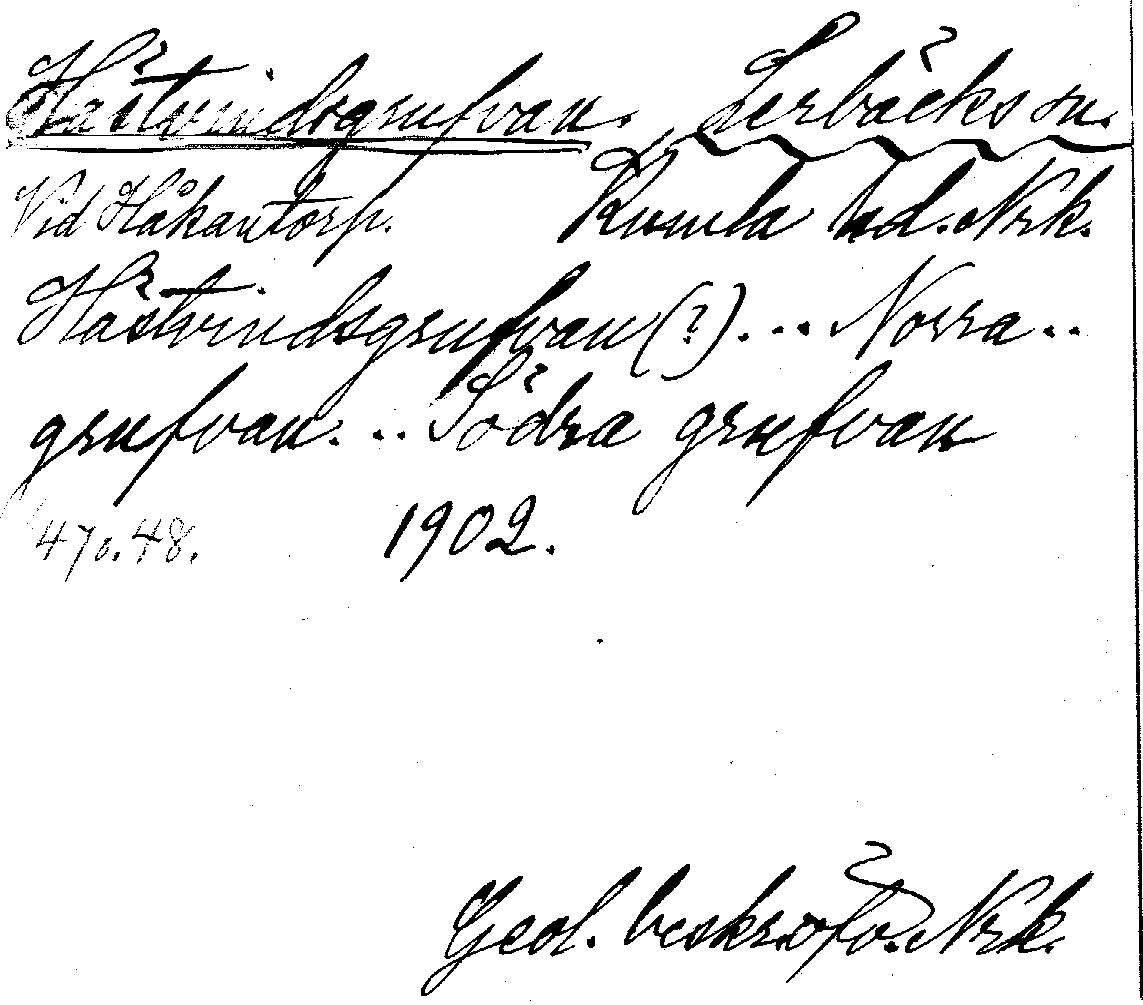 Hästvindsgrufvan. Lerbäcks sn.
Vid Håkantorp. Kumla hd. Nrk.
Hästvindsgrufvan (?). . . Norra . .
grufvan. . . Södra grufvan
47o. 48. 1902.
Geol. beskr. öfv. Nrk.